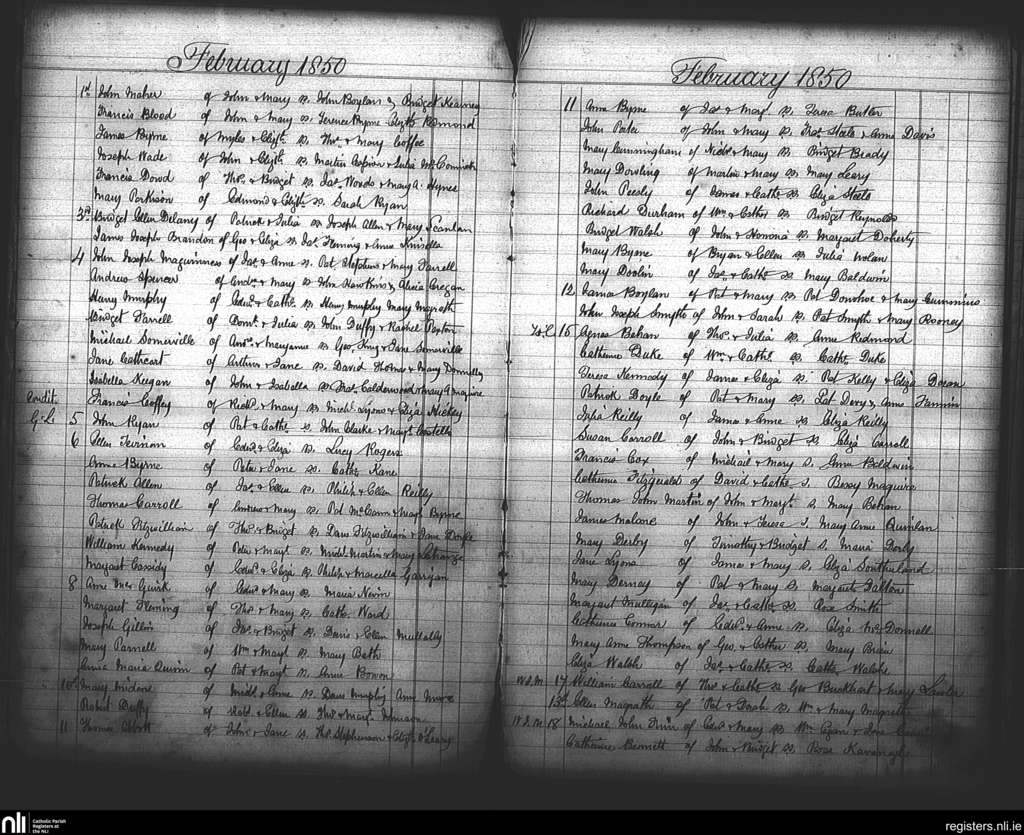 February 1850
1st John Maher of John & Mary ss. John Boylan & Bridget Kearney
Francis Blood of John & Mary ss. Terence Byrne Elizth Redmond
James Byrne of Myles & Elizth ss. Thos & Mary Coffee
Joseph Wade of John & Elizth ss. Martin & Julia McCormick
Francis Dowd of Thos & Bridget ss. Jas Woods & Mary A. Hynes
Mary Parkison of Edmond & Elizth ss. Sarah Ryan
3rd Bridget Ellen Delany of Patrick & Julia ss Joseph Allen & Mary Scanlan
James Joseph Brandon of Geo & Eliza ss Jas Fleming & Anne Kinsella
4 John Joseph Maguinness of Jas & Anne ss. Pat Stephens & Mary Farrell
Andrew Spencer of Andw & Mary ss John Hawkins & Alicia Cregan
Henry Murphy of Edwd & Cathe ss Henry Murphy Mary Magrath
Bridget Farrell of Domk & Julia ss John Duffy & Rachel Paxton
Michael Somerville of Andw & Maryanne ss Geo King & Jane Somerville
Jane Cathcart of Arthur & Jane ss. David Thomas & Mary Donnelly
Isabella Keegan of John & Isabella ss Fras Calderwood & Mary Maguire
Condit. Francis Coffey of Richd & Mary ss Michl Lyons & Eliza Hickey
G. L. 5 John Ryan of Pat & Cathe ss. John Clarke & Margt Costello
6 Ellen Tiernan of Edwd & Eliza ss. Lucy Rogers
Anne Byrne of Peter & Jane ss. Cathe Kane
Patrick Allen of Jas & Ellen ss. Philip & Ellen Reilly
Thomas Carroll of Andrew & Mary ss. Pat McCann & Margt Byrne
Patrick Fitzwilliam of Thos & Bridget ss. Danl Fitzwilliam & Jane Doyle
William Kennedy of Peter & Margt ss. Michl Martin & Mary
Margaret Cassidy of Edwd & Eliza ss. Philip & Marcella Garrigan
8 Anne McGuirk of Edwd & Mary ss. Maria Nevin
Margaret Fleming of Thos & Mary ss. Cathe Ward
Joseph Gillin of Thos & Bridget ss. Denis & Ellen Mullally
Mary Parnell of Wm & Margt ss. Mary Beth
Anna Maria Quinn of Pat & Margt ss Anne Bowen
10th Mary of Michl & Anne ss. Danl Murphy Ann
Robert Duffy of Robt & Ellen ss Thos & Margt Johnson
11 Thomas of John & Jane ss. Thos Stephenson & Elizth O'Leary
February 1850
11 Anne Byrne of Jas & Margt ss. Teresa Butler
John Porter of John & Mary ss. Thos Steele & Anne Davis
Mary Cunningham of Nichs & Mary ss. Bridget Brady
Mary Dowling of Martin & Mary ss. Mary Leary
John Peesly of James & Cathe ss. Eliza Steele
Richard Durham of Wm & Cathe ss Bridget Reynolds
Bridget Walsh of John & Honoria ss. Margaret Doherty
Mary Byrne of Bryan & Ellen ss Julia Nolan
Mary Doolin of Jas & Cathe ss. Mary Baldwin
12 James Boylan of Pat & Mary ss Pat Donohoe & Mary Cummins
John Joseph Smyth of John & Sarah ss. Pat Smyth & Mary Rooney
15 Agnes Behan of Thos & Julia ss. Anne Redmond
Catherine Duke of Wm & Cathe ss. Cathe Duke
Teresa Kennedy of James & Eliza ss. Pat Kelly & Eliza Doran
Patrick Doyle of Pat & Mary ss. Pat Devy & Anne Fannin
Julia Reilly of James & Anne ss. Eliza Reilly
Susan Carroll of John & Bridget ss. Eliza Carroll
Francis Cox of Michael & Mary S. Anne Baldwin
Catherine Fitzgerald of David & Cathe S. Bessy Maguire
Thomas John Martin of John & Margt S. Mary Behan
James Malone of John & Teresa S. Mary Anne Quinlan
Mary Derby of Timothy & Bridget S. Maria Derby
Jane Lyons of James & Mary S. Eliza Southerland
Mary Dernay of Pat & Mary S. Margaret Dalton
Margaret Mulligan of Jas & Cathe ss. Rose Smith
Catherine Connor of Edwd & Anne ss. Eliza McDonnell
Mary Anne Thompson of Geo & Esther ss. Mary Brien
Eliza Walsh of Jas & Cathe ss. Cathe Walsh
W.S.M. 17 William Carroll of Thos & Cathe ss Geo Burkhart & Mary Lawlor
13th Ellen Magrath of Pat & Sarah ss. Wm & Mary Magrath
W.S.M. 18 Michael John Finn of Edwd & Mary ss Wm Egan & Jane
Catherine Bennett of John & Bridget ss. Rose Kavanagh
nli Catholic Parish Registers at the NLI
registers.nli.ie